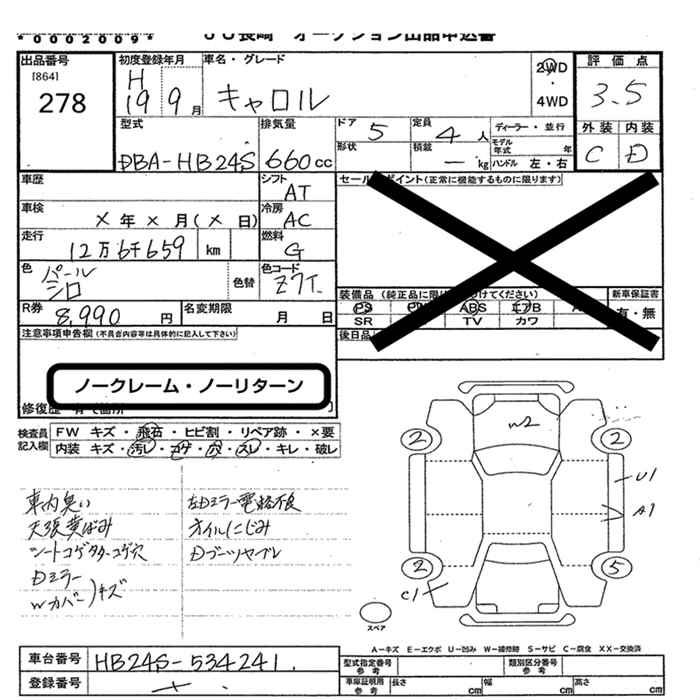 *0002009* JU長崎 オークション出品申込書
出品番号
[864]
278
初度登録年月
H
19 9月
車名・グレード
キャロル
2WD
・
4WD
評価点
3.5
外装 内装
C D
型式
DBA-HB24S
排気量
660cc
ドア 5
形状
定員 4人
積載 ー kg
ディーラー・並行
モデル年式 年
ハンドル 左・右
車歴
シフト
AT
車検
× 年 × 月(× 日)
冷房
AC
走行
12万6千659 km
燃料
G
色
パール
シロ
色替
色コード
Z7T
R券
8,990円
名変期限
月 日
セールスポイント(正常に機能するものに限ります)
装備品(純正品に限り
つけてください)
新車保証書
有・無
PS
ABS エアB
SR TV カワ
後日品
注意事項申告欄(不具合内容等は具体的に記入して下さい)
ノークレーム・ノーリターン
修復歴 有で箇所
検査員記入欄
FW キズ・飛石・ヒビ割・リペア跡・×要
内装 キズ・汚レ・コゲ・穴・スレ・キレ・破レ
車内臭い
天張黄ばみ
シートコゲタター・コゲ穴
Dミラー
Wカバー)キズ
左Dミラー電格不良
オイルにじみ
Dブーツヤブレ
W2
2 2
U1
A1
2 5
C1
スペア
A-キズ E-エクボ U-凹み W-補修跡 S-サビ C-腐食 XX-交換済
車台番号 HB24S-534241
登録番号
型式指定番号
参考
類別区分番号
参考
車庫証明用
参考
長さ cm
幅 cm
高さ cm